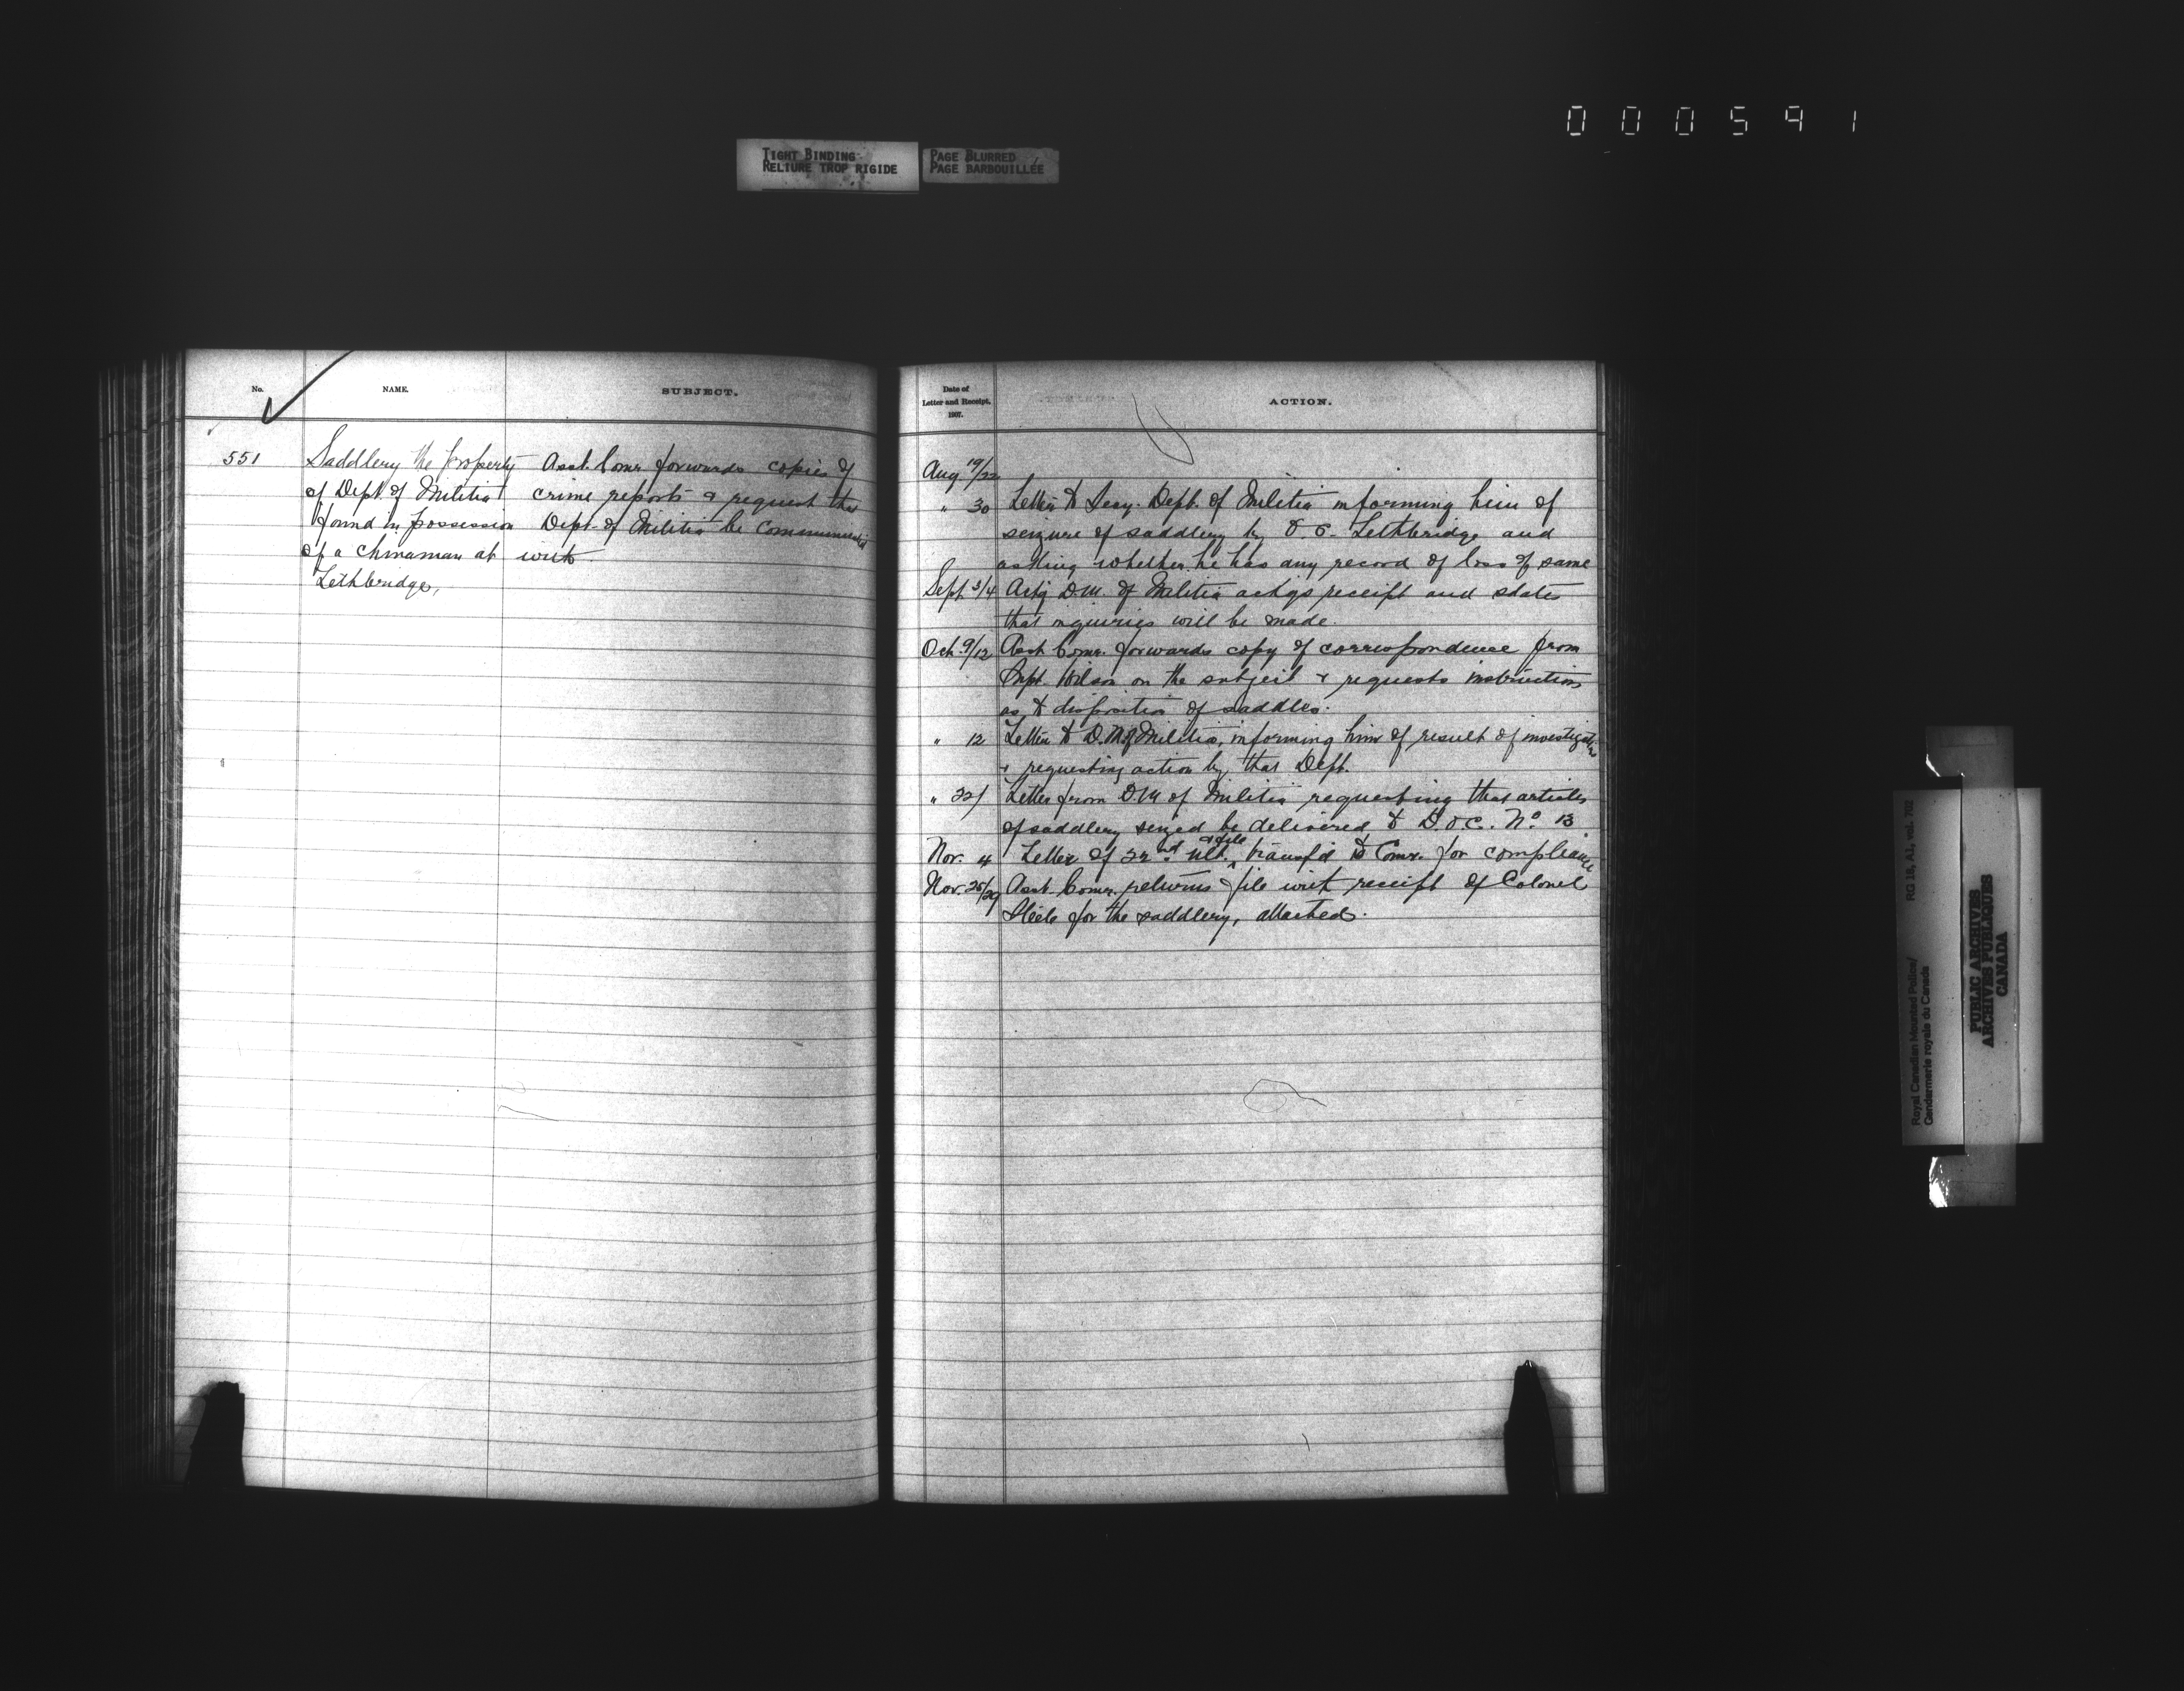 000591
TIGHT BINDING
RELIURE TROP RIGIDE
PAGE BLURRED
PAGE BARBOUILLÉE
No.
NAME.
SUBJECT.
551
Saddlery the property
of Dept of Militia
found in possession
of a Chinaman at
Lethbridge,
Asst. Comr. forwards copies of
crime reports & request that
Dept. of Militia be communicated
with
Date of
Letter and Receipt.
1907.
ACTION.
Aug 19/22
" 30 Letter to Secy. Dept. of Militia informing him of
seizure of saddlery by O.C. Lethbridge and
asking whether he has any record of loss of same
Sept 3/4 Actg D.M. of Militia ackgs receipt and states
that inquiries will be made.
Oct. 9/12 Asst Comr. forwards copy of correspondence from
Supt. Wilson on the subject & requests instructions
as to disposition of saddles.
" 12 Letter to D.M. of Militia, informing him of result of investigation
& requesting action by that Dept.
" 22/ Letter from D.M of Militia requesting that articles
of saddlery seized be delivered to D.O.C. No 13
Nor. 4 Letter of 22nd ult. & file transf'd to Comr. for compliance
Nov. 25/29 Asst. Comr. returns file with receipt of Colonel
Steele for the saddlery, attached.
Royal Canadian Mounted Police/
Gendarmerie royale du Canada
RG 18, A1, vol. 702
PUBLIC ARCHIVES
ARCHIVES PUBLIQUES
CANADA